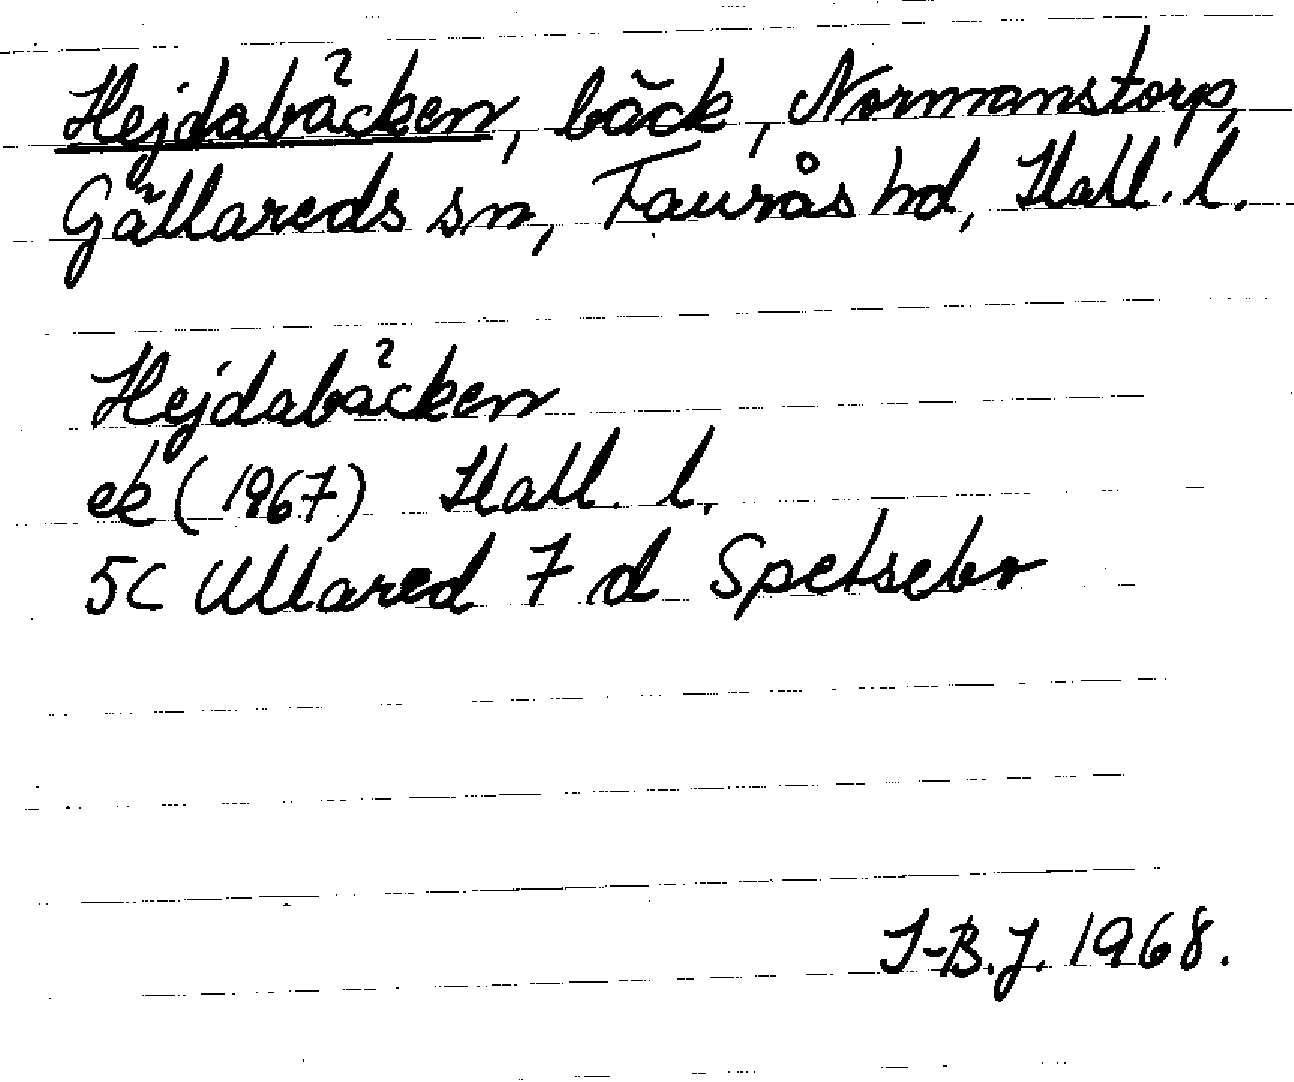 Hejdabäcken, bäck, Normanstorp,
Gällareds sn, Faurås hd, Hall. l.
Hejdabäcken
ek (1967) Hall. l.
5C Ullared 7 d Spetsebo
I-B.J. 1968.